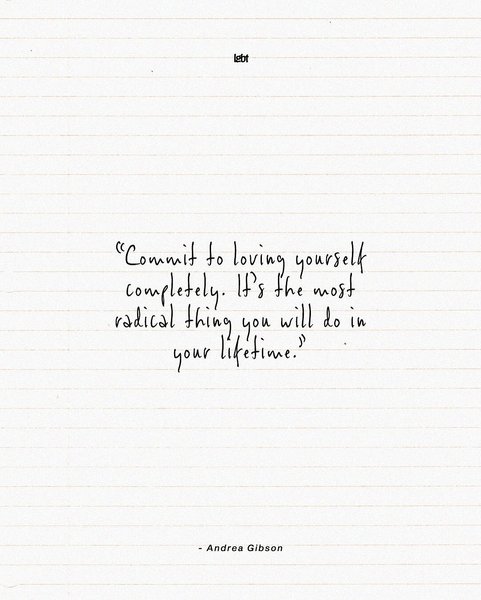 “Commit to loving yourself
completely. It's the most
radical thing you will do in
your lifetime.”
- Andrea Gibson